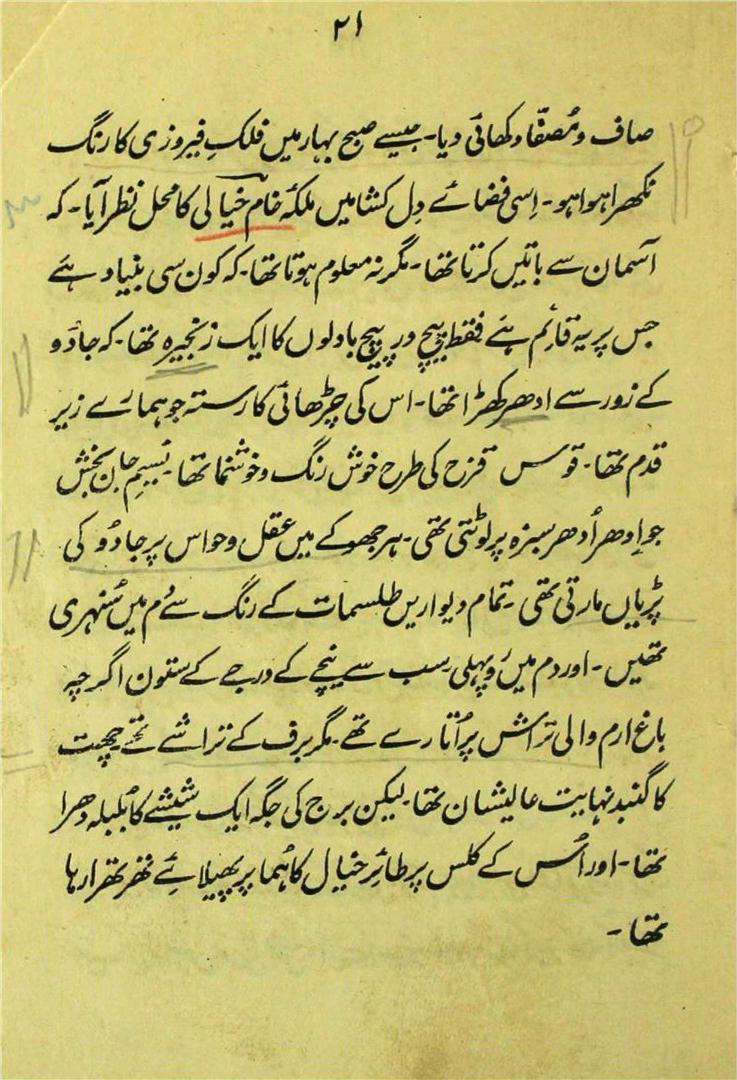 ۲۱
صاف و مُصفّا دکھائی دیا۔ جیسے صبح بہار میں فلکِ فیروزی کا رنگ
نکھرا ہوا ہو۔ اِسی فضائے دِل کشا میں ملکۂ خام خیالی کا محل نظر آیا۔ کہ
آسمان سے باتیں کرتا تھا۔ مگر نہ معلوم ہوتا تھا۔ کہ کون سی بنیاد ہے
جس پر یہ قائِم ہے فقط پیچ در پیچ بادلوں کا ایک زنجیرہ تھا۔ کہ جادُو
کے زور سے ادھر کھڑا تھا۔ اس کی چڑھائی کا رستہ جو ہمارے زیر
قدم تھا۔ قوس قزح کی طرح خوش رنگ و خوشنما تھا۔ نسیمِ جان بخش
جو اِدھر اُدھر سبزہ پر لوٹتی تھی۔ ہر جھوکے میں عقل و حواس پر جادُو کی
پڑیاں مارتی تھی۔ تمام دیواریں طلسمات کے رنگ سے دُم میں سُنہری
تھیں۔ اور دم میں رُوپہلی۔ سب سے نیچے کے درجے کے ستون اگرچہ
باغ ارم والی تراش پر اُتارے تھے۔ مگر برف کے تراشے تھے۔ چھت
کا گنبد نہایت عالیشان تھا۔ لیکن برج کی جگہ ایک شیشے کا بُلبلہ دھرا
تھا۔ اور اُس کے کلس پر طائرِ خیال کا ہُما پر پھیلائے تھرتھرا رہا
تھا۔